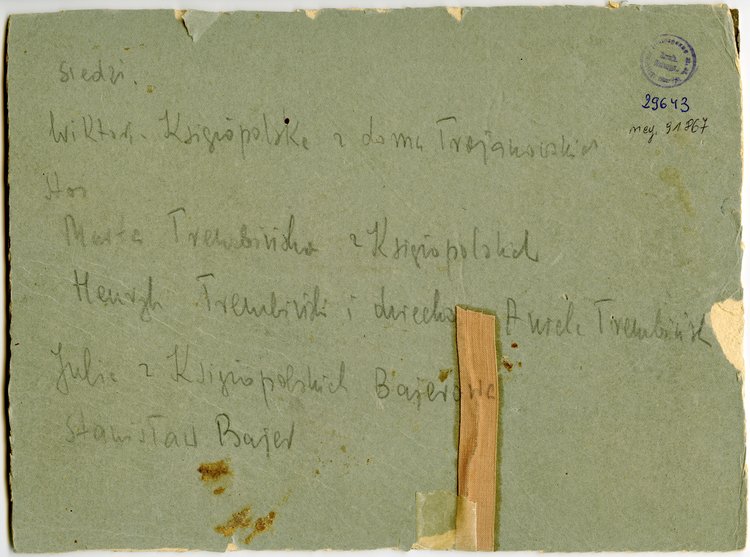 siedzi.
29643
neg. 91867
Wiktor. Księżopolska z domu Trojanowskich
Marta Trembińska z Księżopolskich
Henryk Trembiński i dziecko Aurela Trembińsk
Julia z Księżopolskich Bajerowa
Stanisław Bajer